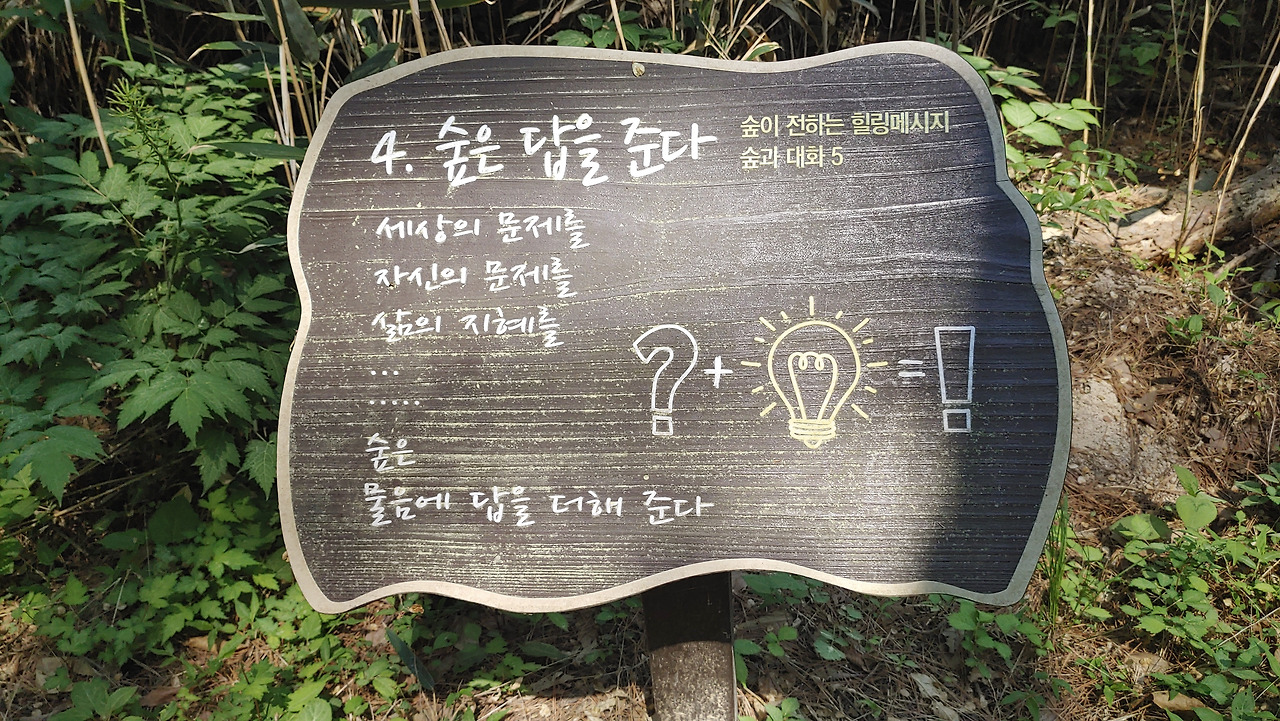 4. 숲은 답을 준다
숲이 전하는 힐링메시지
숲과 대화 5
세상의 문제를
자신의 문제를
삶의 지혜를
...
.....
? + = !
숲은
물음에 답을 더해 준다